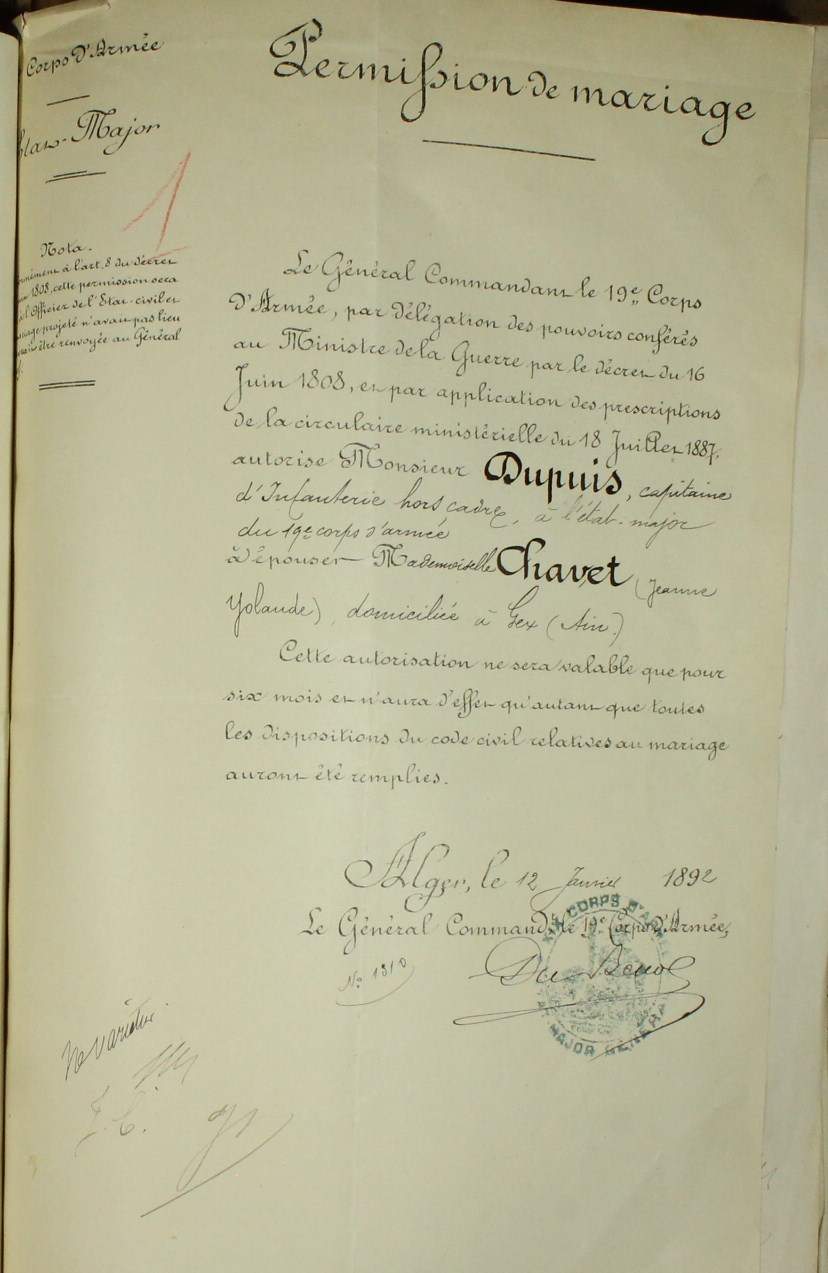 Corps d'Armée
Major
Permission de mariage
1
Nota.
à l'art. 8 du décret
1808, cette permission sera
l'Officier de l'État-civil et
projeté n'avait pas lieu
être renvoyée au Général
Le Général Commandant le 19e Corps
d'Armée, par délégation des pouvoirs conférés
au Ministre de la Guerre par le décret du 16
Juin 1808, et par application des prescriptions
de la circulaire ministérielle du 18 Juillet 1887,
autorise Monsieur Dupuis, capitaine
d'Infanterie hors cadre, à l'état-major
du 19e corps d'armée
à épouser Mademoiselle Chavet (Jeanne
Yolande), domiciliée à Gex (Ain.)
Cette autorisation ne sera valable que pour
six mois et n'aura d'effet qu'autant que toutes
les dispositions du code civil relatives au mariage
auront été remplies.
Alger, le 12 Janvier 1892
Le Général Command le 19e Corps d'Armée,
No 1310
CORPS D'AR
MAJOR GÉNÉRA
Ne varietur